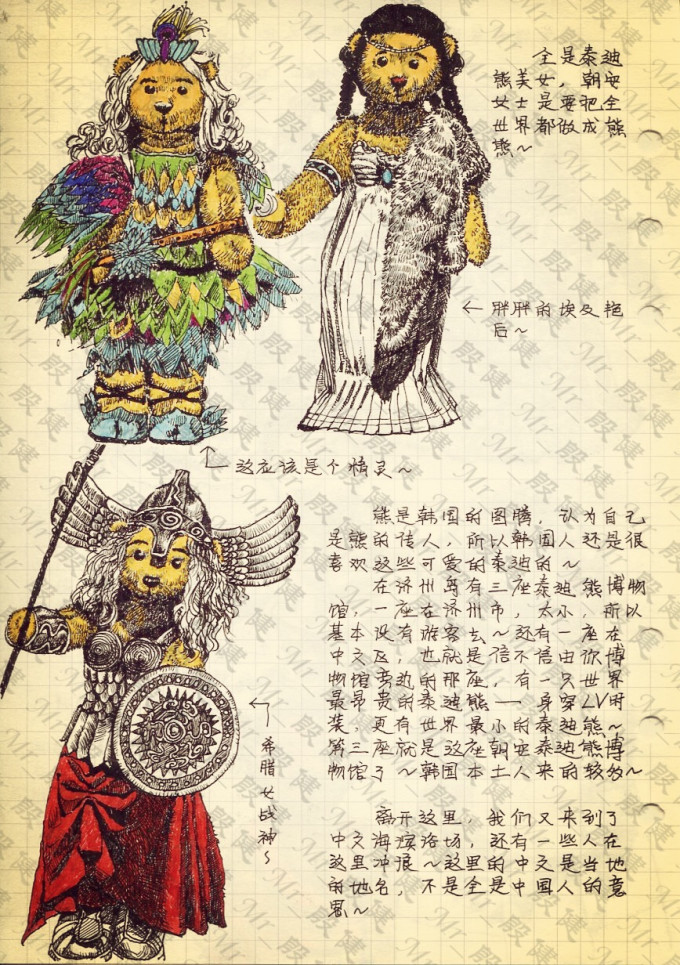 全是泰迪
熊美女，朝安
女士是要把全
世界都做成熊
熊～
← 胖胖的埃及艳
后～
这应该是个精灵～
熊是韩国的图腾，认为自己
是熊的传人，所以韩国人还是很
喜欢这些可爱的泰迪的～
在济州岛有三座泰迪熊博物
馆，一座在济州市，太小，所以
基本没有游客去～还有一座在
中文区，也就是信不信由你博
物馆旁边的那座，有一只世界
最昂贵的泰迪熊——身穿LV时
装，更有世界最小的泰迪熊～
第三座就是这座朝安泰迪熊博
物馆了～韩国本土人来的较多～
← 希腊女战神～
离开这里，我们又来到了
中文海滨浴场，还有一些人在
这里冲浪～这里的中文是当地
的地名，不是全是中国人的意
思～
Mr_殷健